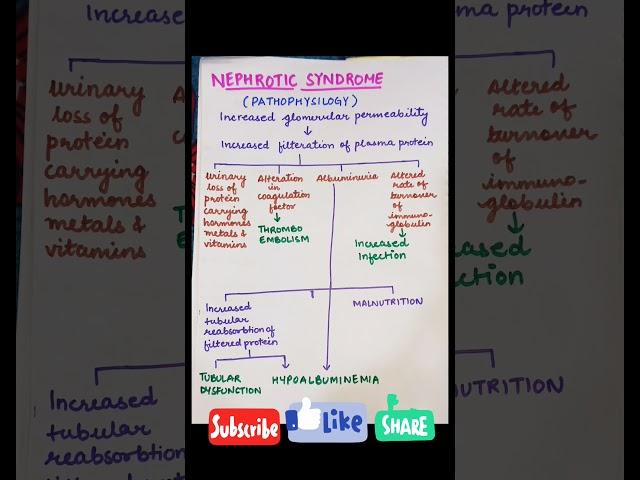 Increased
plasma protein
urinary
loss of
protein
carrying
hormones
metals &
vitamins
NEPHROTIC SYNDROME
(PATHOPHYSILOGY)
Increased glomerular permeability
Increased filteration of plasma protein
urinary
loss of
protein
carrying
hormones
metals &
vitamins
Alteration
in
coagulation
factor
THROMBO
EMBOLISM
Albuminuria
Altered
rate of
turnover
of
immuno-
globulin
Increased
Infection
MALNUTRITION
Increased
tubular
reabsorbtion of
filtered protein
TUBULAR
DYSFUNCTION
HYPOALBUMINEMIA
Altered
rate of
turnover
of
immuno-
globulin
Increased
tubular
reabsorbtion
Subscribe
Like
SHARE